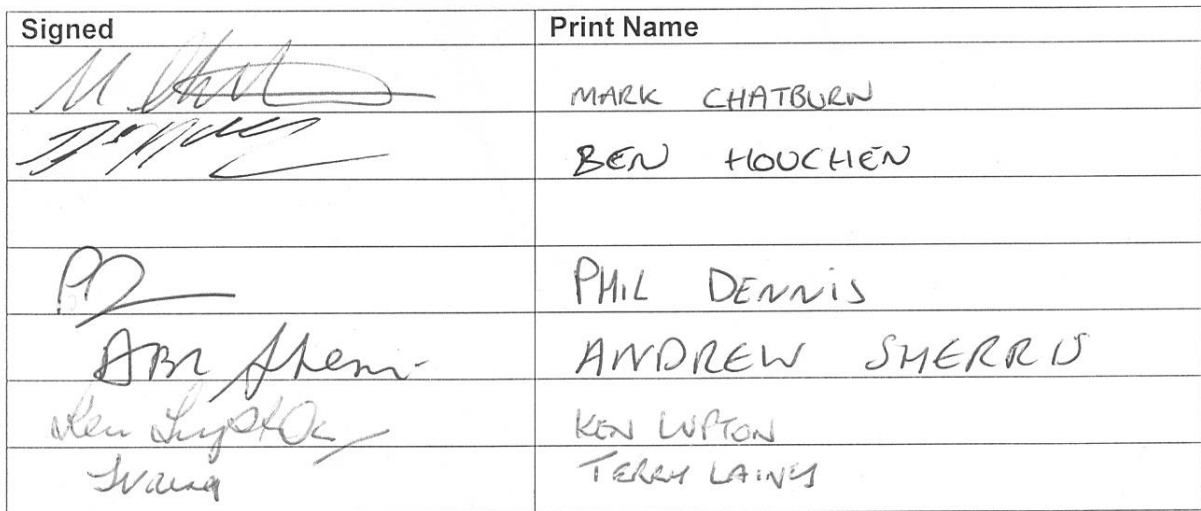 Signed Print Name
MARK CHATBURN
BEN HOUCHEN
PHIL DENNIS
ANDREW SHERRIS
Ken Lupton KEN LUPTON
TERRY LAING